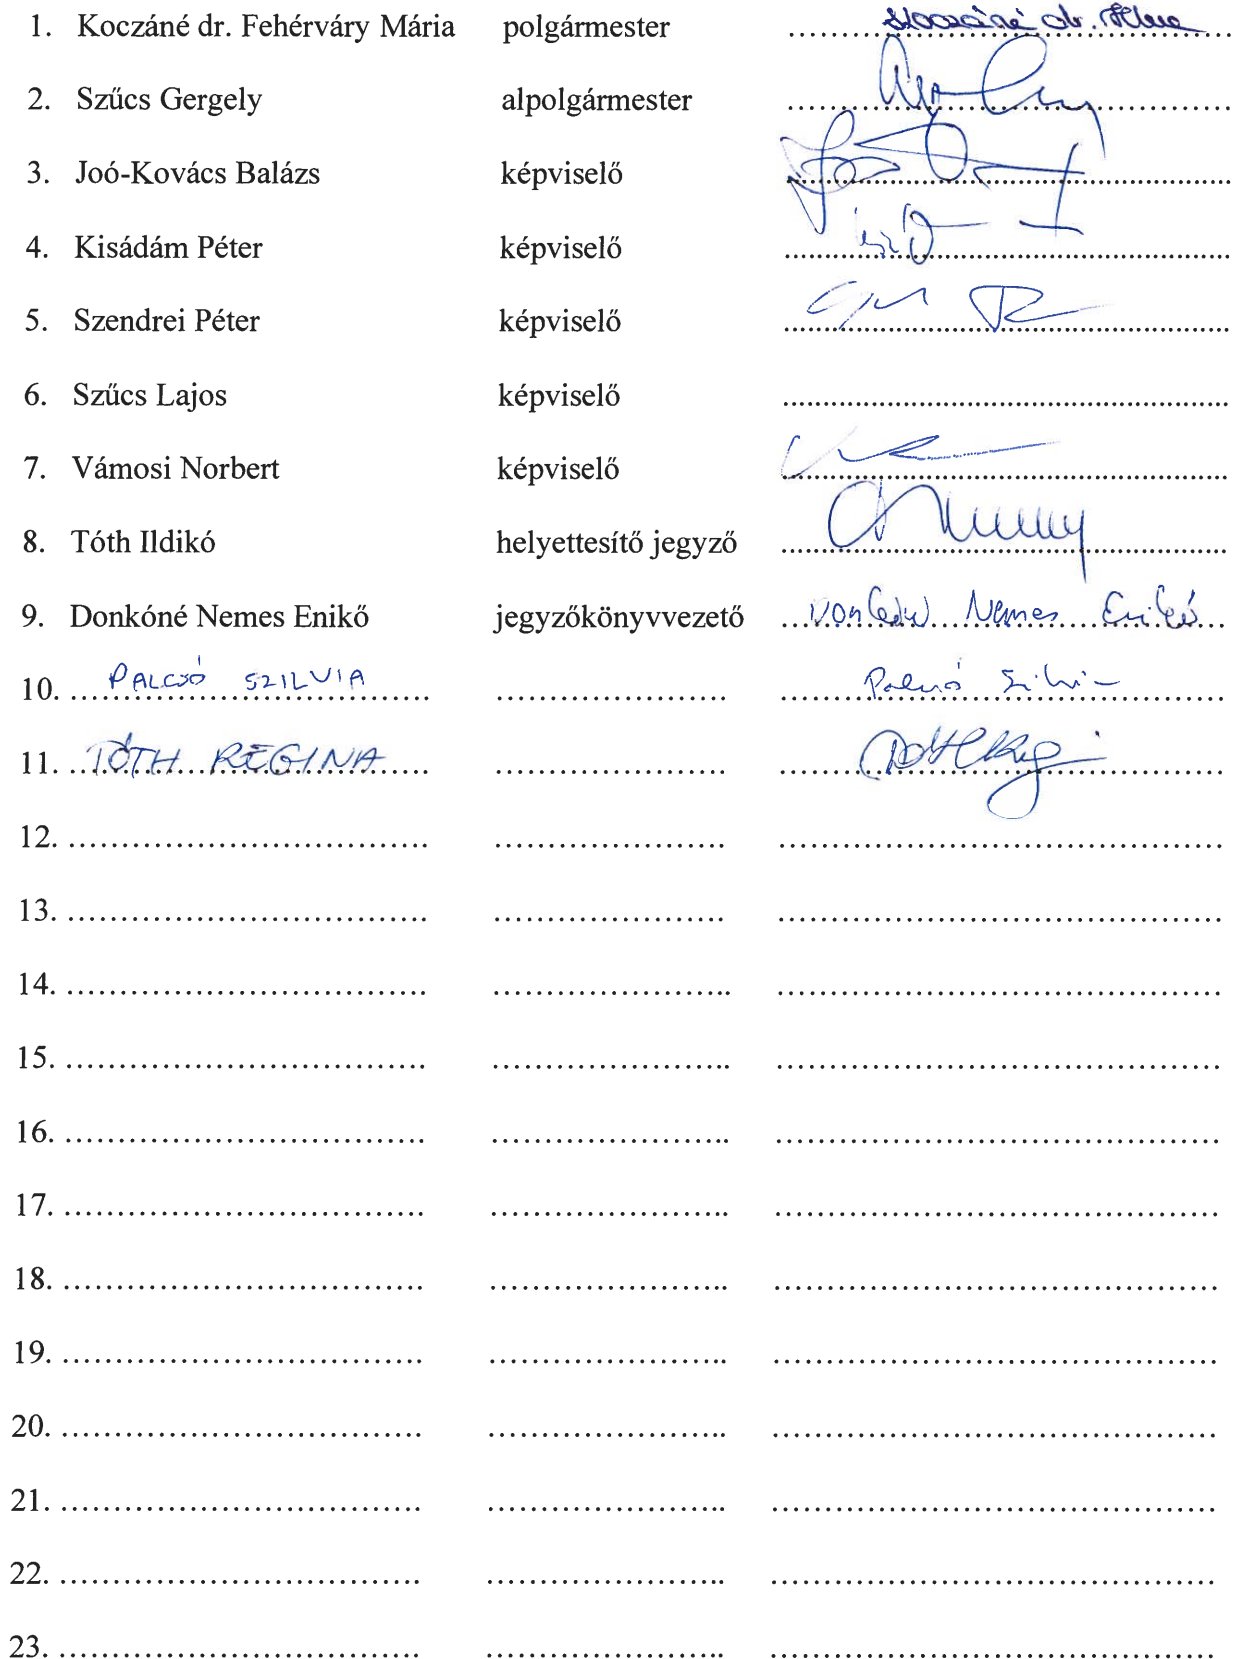 1. Koczáné dr. Fehérváry Mária polgármester Koczáné dr.
2. Szűcs Gergely alpolgármester
3. Joó-Kovács Balázs képviselő
4. Kisádám Péter képviselő
5. Szendrei Péter képviselő
6. Szűcs Lajos képviselő
7. Vámosi Norbert képviselő
8. Tóth Ildikó helyettesítő jegyző
9. Donkóné Nemes Enikő jegyzőkönyvvezető Donkóné Nemes Enikő
10. PALCSÓ SZILVIA Palcsó Szilvia
11. TÓTH REGINA
12.
13.
14.
15.
16.
17.
18.
19.
20.
21.
22.
23.